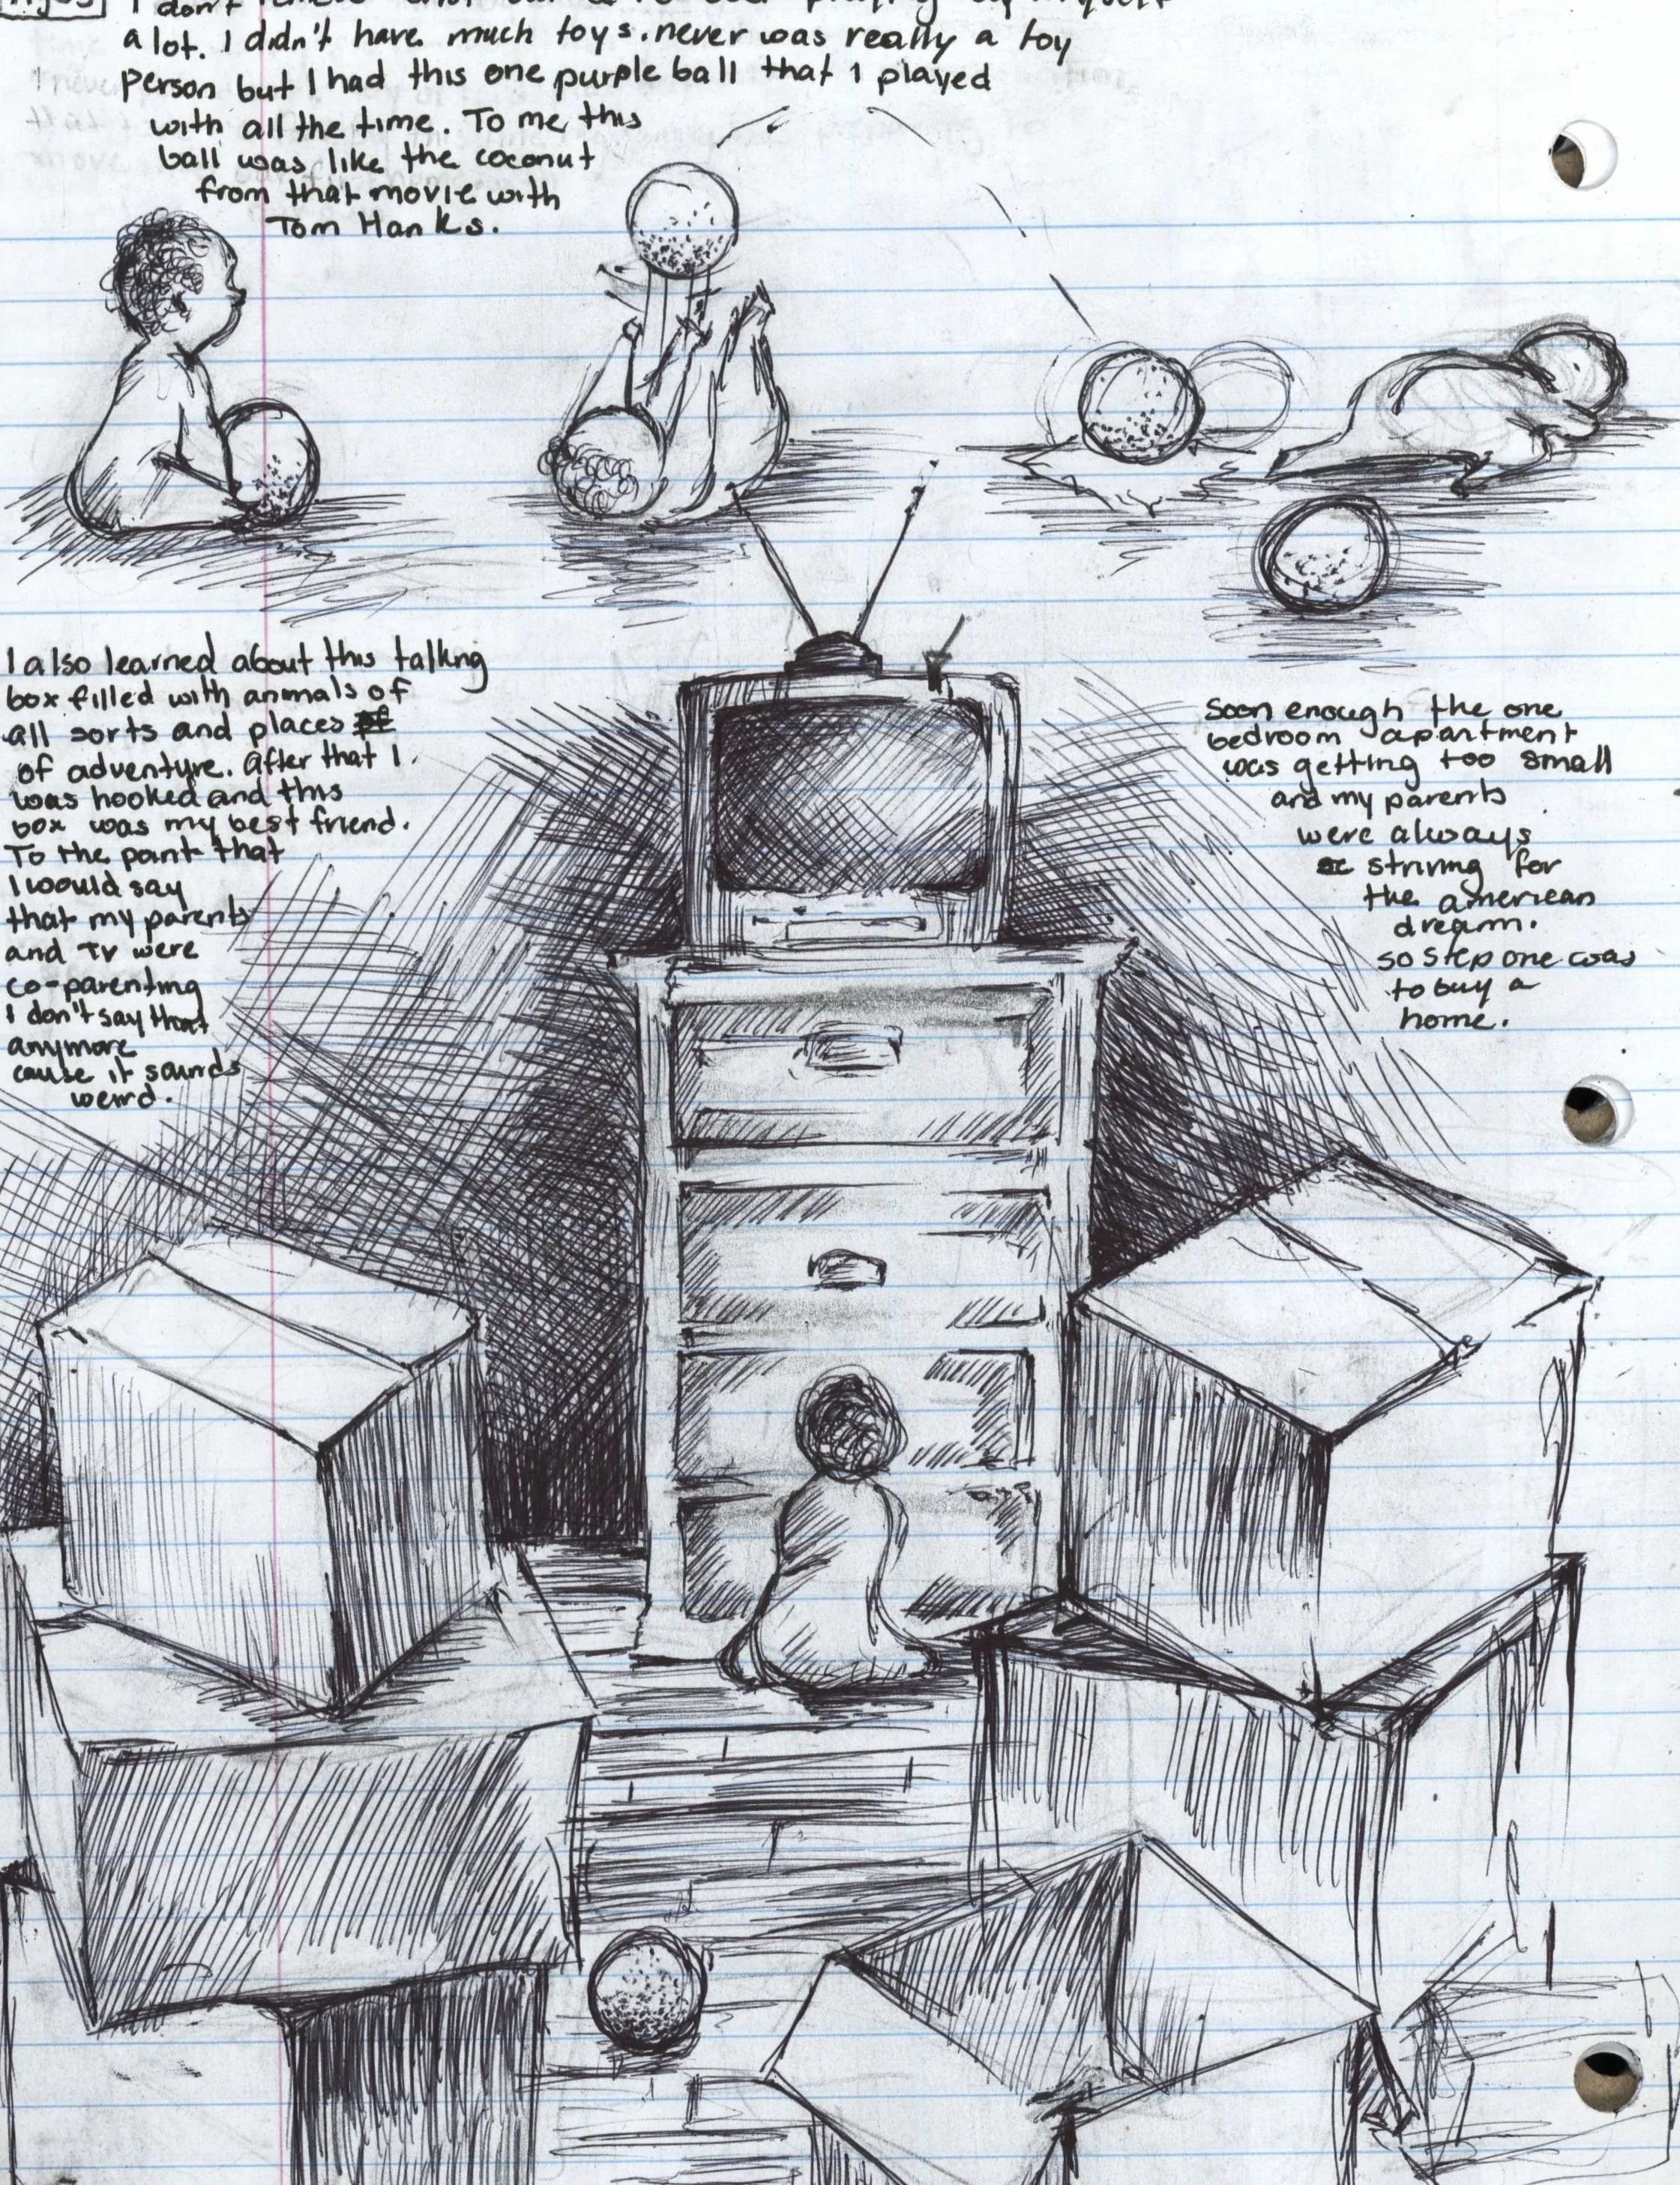 I don't
a lot. I didn't have much toys. never was really a toy
person but I had this one purple ball that I played
with all the time. To me this
ball was like the coconut
from that movie with
Tom Hanks.
I also learned about this talking
box filled with animals of
all sorts and places of
of adventure. After that I
was hooked and this
box was my best friend.
To the point that
I would say
that my parents
and TV were
co-parenting
I don't say that
anymore
cause it sounds
weird.
Soon enough the one
bedroom apartment
was getting too small
and my parents
were always
striving for
the american
dream.
so step one was
to buy a
home.